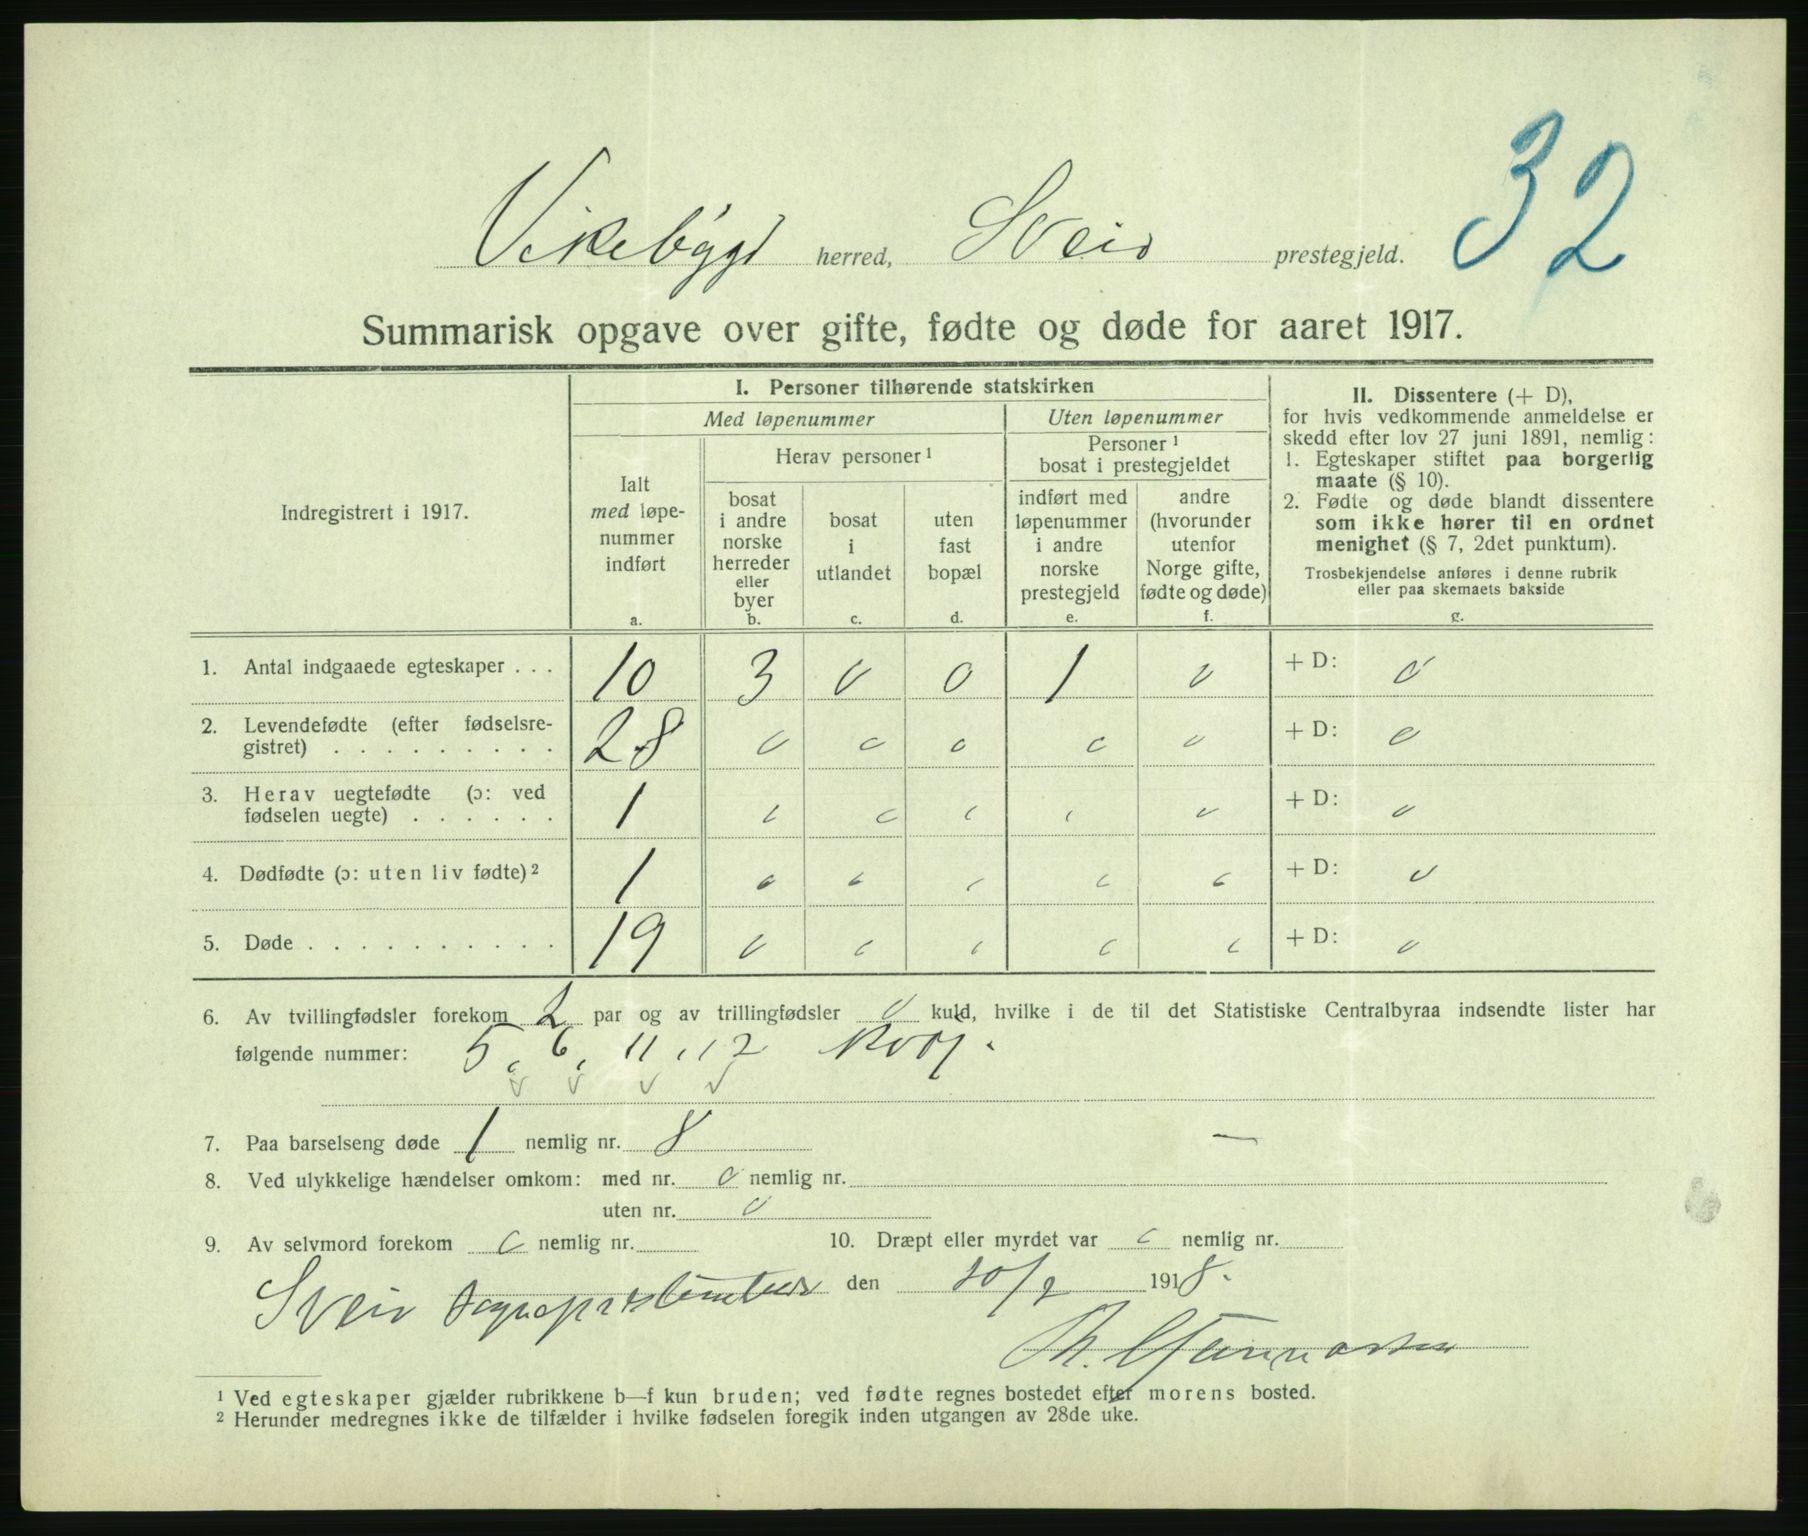 32
Vikebygd herred, Sveio prestegjeld.
Summarisk opgave over gifte, fødte og døde for aaret 1917.
Indregistrert i 1917.
I. Personer tilhørende statskirken
Med løpenummer
Uten løpenummer
Ialt
med løpe-
nummer
indført
a.
Herav personer 1
bosat
i andre
norske
herreder
eller
byer
b.
bosat
i
utlandet
c.
uten
fast
bopæl
d.
Personer 1
bosat i prestegjeldet
indført med
løpenummer
i andre
norske
prestegjeld
e.
andre
(hvorunder
utenfor
Norge gifte,
fødte og døde)
f.
II. Dissentere (+ D),
for hvis vedkommende anmeldelse er
skedd efter lov 27 juni 1891, nemlig:
1. Egteskaper stiftet paa borgerlig
maate (§ 10).
2. Fødte og døde blandt dissentere
som ikke hører til en ordnet
menighet (§ 7, 2det punktum).
Trosbekjendelse anføres i denne rubrik
eller paa skemaets bakside
g.
1. Antal indgaaede egteskaper . . . 10 3 0 0 1 0 + D: 0
2. Levendefødte (efter fødselsre-
gistret) . . . . . . . . . 28 0 0 0 0 0 + D: 0
3. Herav uegtefødte (ɔ: ved
fødselen uegte) . . . . . . 1 0 0 0 0 0 + D: 0
4. Dødfødte (ɔ: uten liv fødte) 2 1 0 0 0 0 0 + D: 0
5. Døde . . . . . . . . . . 19 0 0 0 0 0 + D: 0
6. Av tvillingfødsler forekom 2 par og av trillingfødsler 0 kuld, hvilke i de til det Statistiske Centralbyraa indsendte lister har
følgende nummer: 5, 6, 11, 12
7. Paa barselseng døde 1 nemlig nr. 8 —
8. Ved ulykkelige hændelser omkom: med nr. 0 nemlig nr.
uten nr. 0
9. Av selvmord forekom 0 nemlig nr. 10. Dræpt eller myrdet var 0 nemlig nr.
Sveio den 10/2 1918.
1 Ved egteskaper gjælder rubrikkene b—f kun bruden; ved fødte regnes bostedet efter morens bosted.
2 Herunder medregnes ikke de tilfælder i hvilke fødselen foregik inden utgangen av 28de uke.